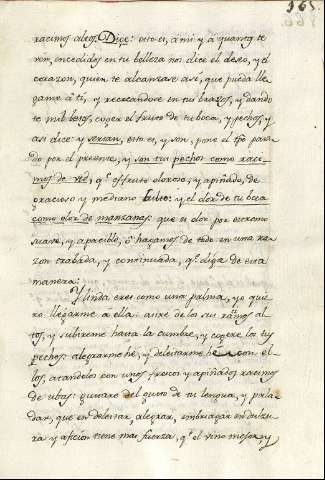 365.
racimos a los. Diçe: esto es, a mi y à quantos te
ven, encendidos en tu belleza nos dice el deseo, y el
corazon, quien te alcanzase asi, que pueda lle
garme à tí, y recostandose en tus brazos, y dando
te mil besos, coger el fruto de tu boca, y pechos, y
asi dice: y serian, esto es, y son, pone el tpo pasa
do por el presente, y son tus pechos como raci-
mos de vid, q.e es fruto oloroso, y apiñado, de
gracioso y mediano bulto: y el olor de tu boca
como olor de manzanas que es olor por extremo
suave, y apacible, ò hagamos de todo en una ra-
zon trabada, y continuada, q.e diga de esta
manera:
Y linda eres como una palma, yo que
ro llegarme à ella asiré de los sus ramos al
tos, y subireme hasta la cumbre, y cogere los tus
pechos alegrarme hé, y deleitarme hé con el
los, atandelos con unos frescos y apiñados racimos
de ubas: gustare del gusto de tu lengua, y pala
dar, que en deleitar, alegrar, embriagar en dulzu
ra y aficion tiene mas fuerza, q.e el vino mejor, y